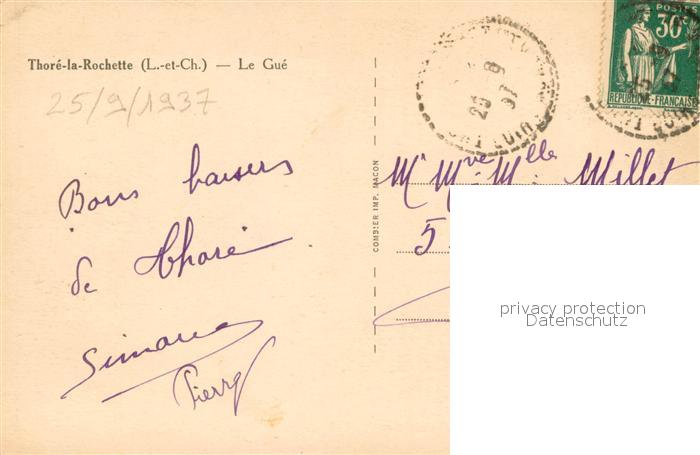 Thoré-la-Rochette (L.-et-Ch.) — Le Gué
25/9/1937
Bons baisers
de Thoré
Simone
Pierre
COMBIER IMP. MACON
POSTES
30c
REPUBLIQUE-FRANÇAISE
Mr Mme Mlle Millet
5
privacy protection
Datenschutz